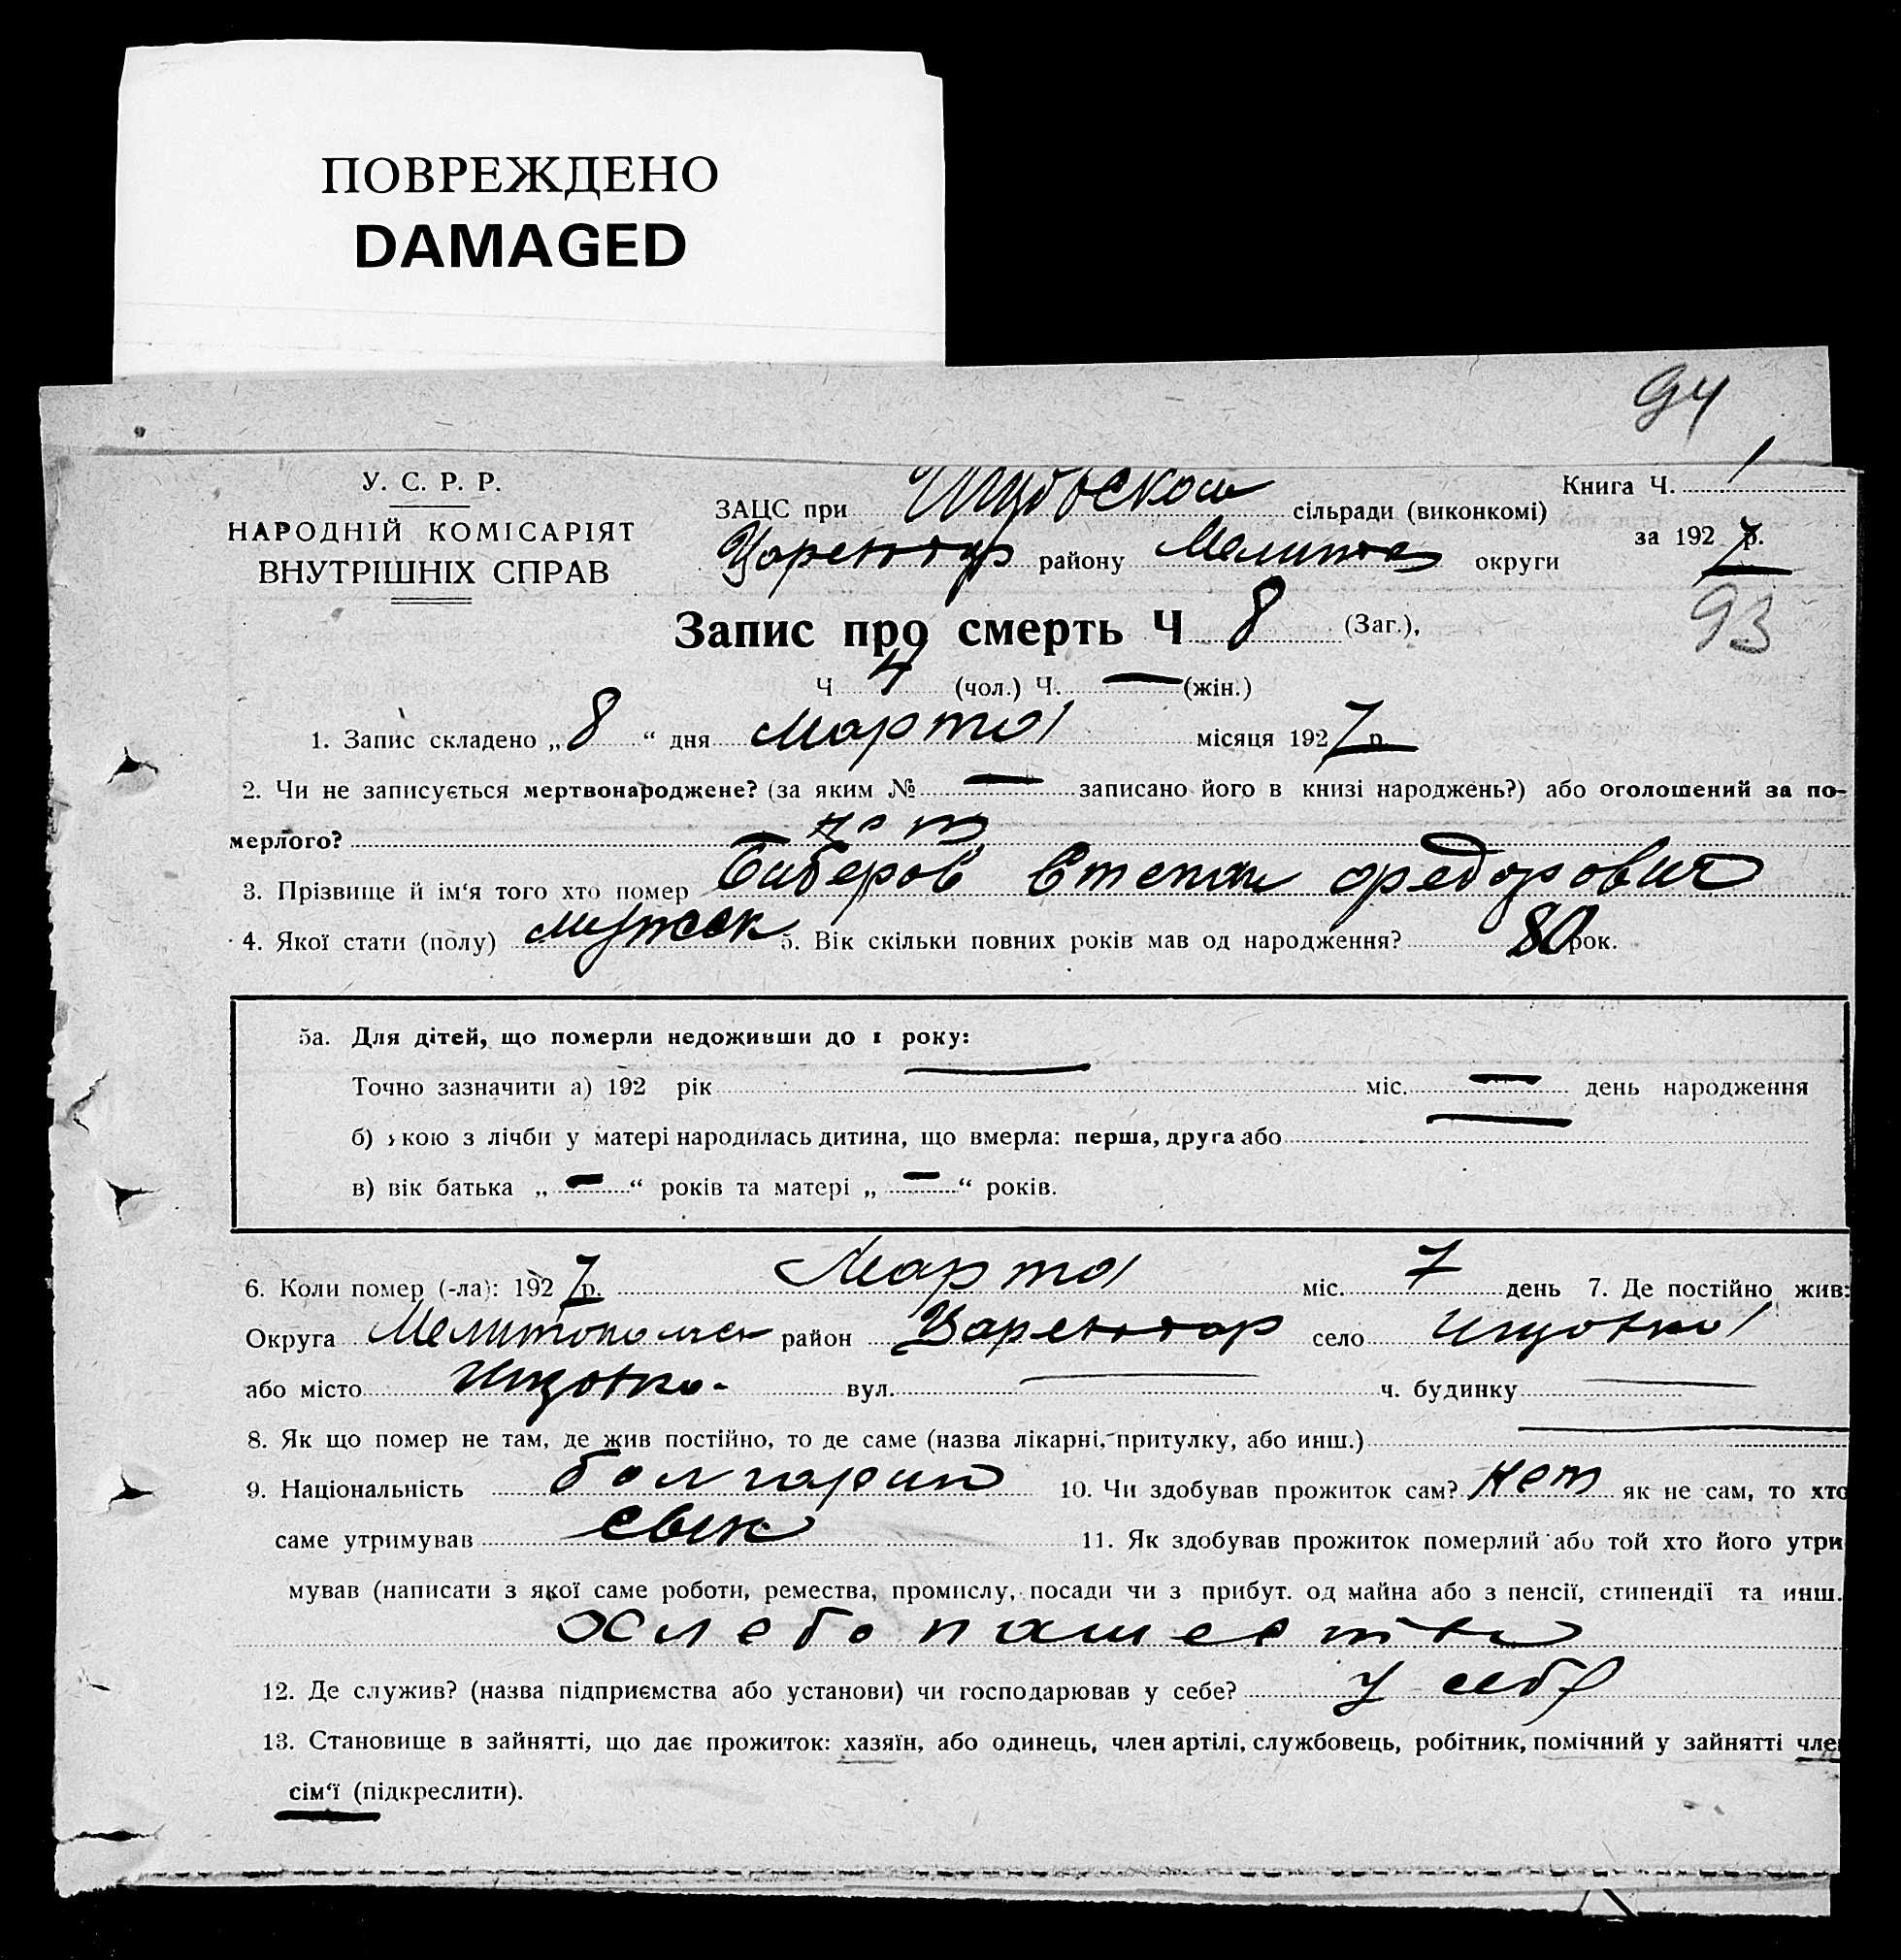 ПОВРЕЖДЕНО
DAMAGED
94
У. С. Р. Р.
НАРОДНІЙ КОМІСАРІЯТ
ВНУТРІШНІХ СПРАВ
Книга Ч. 1
за 1927 р.
93
ЗАЦС при сільради (виконкомі)
району округи
Запис про смерть Ч 8 (Заг.),
Ч 4 (чол.) Ч. — (жін.)
1. Запис складено „8“ дня Марта місяця 1927 р.
2. Чи не записується мертвонароджене? (за яким № — записано його в книзі народжень?) або оголошений за по-
мерлого? нет
3. Прізвище й ім‘я того хто помер Биберов Степан Федорович
4. Якої стати (полу) мужск 5. Вік скільки повних років мав од народження? 80 рок.
5а. Для дітей, що померли недоживши до 1 року:
Точно зазначити а) 192 рік — міс. — день народження
б) якою з лічби у матері народилась дитина, що вмерла: перша, друга або —
в) вік батька „—“ років та матері „—“ років.
6. Коли помер (-ла): 1927 р. Марта міс. 7 день 7. Де постійно жив:
Округа район село
або місто вул. — ч. будинку —
8. Як що помер не там, де жив постійно, то де саме (назва лікарні, притулку, або инш.) —
9. Національність болгарин 10. Чи здобував прожиток сам? нет як не сам, то хто
саме утримував сын 11. Як здобував прожиток померлий або той хто його утри
мував (написати з якої саме роботи, ремества, промислу, посади чи з прибут. од майна або з пенсії, стипендії та инш.
12. Де служив? (назва підприємства або установи) чи господарював у себе? у себя
13. Становище в зайнятті, що дає прожиток: хазяїн, або одинець, член артілі, службовець, робітник, помічний у зайнятті член
сім‘ї (підкреслити).